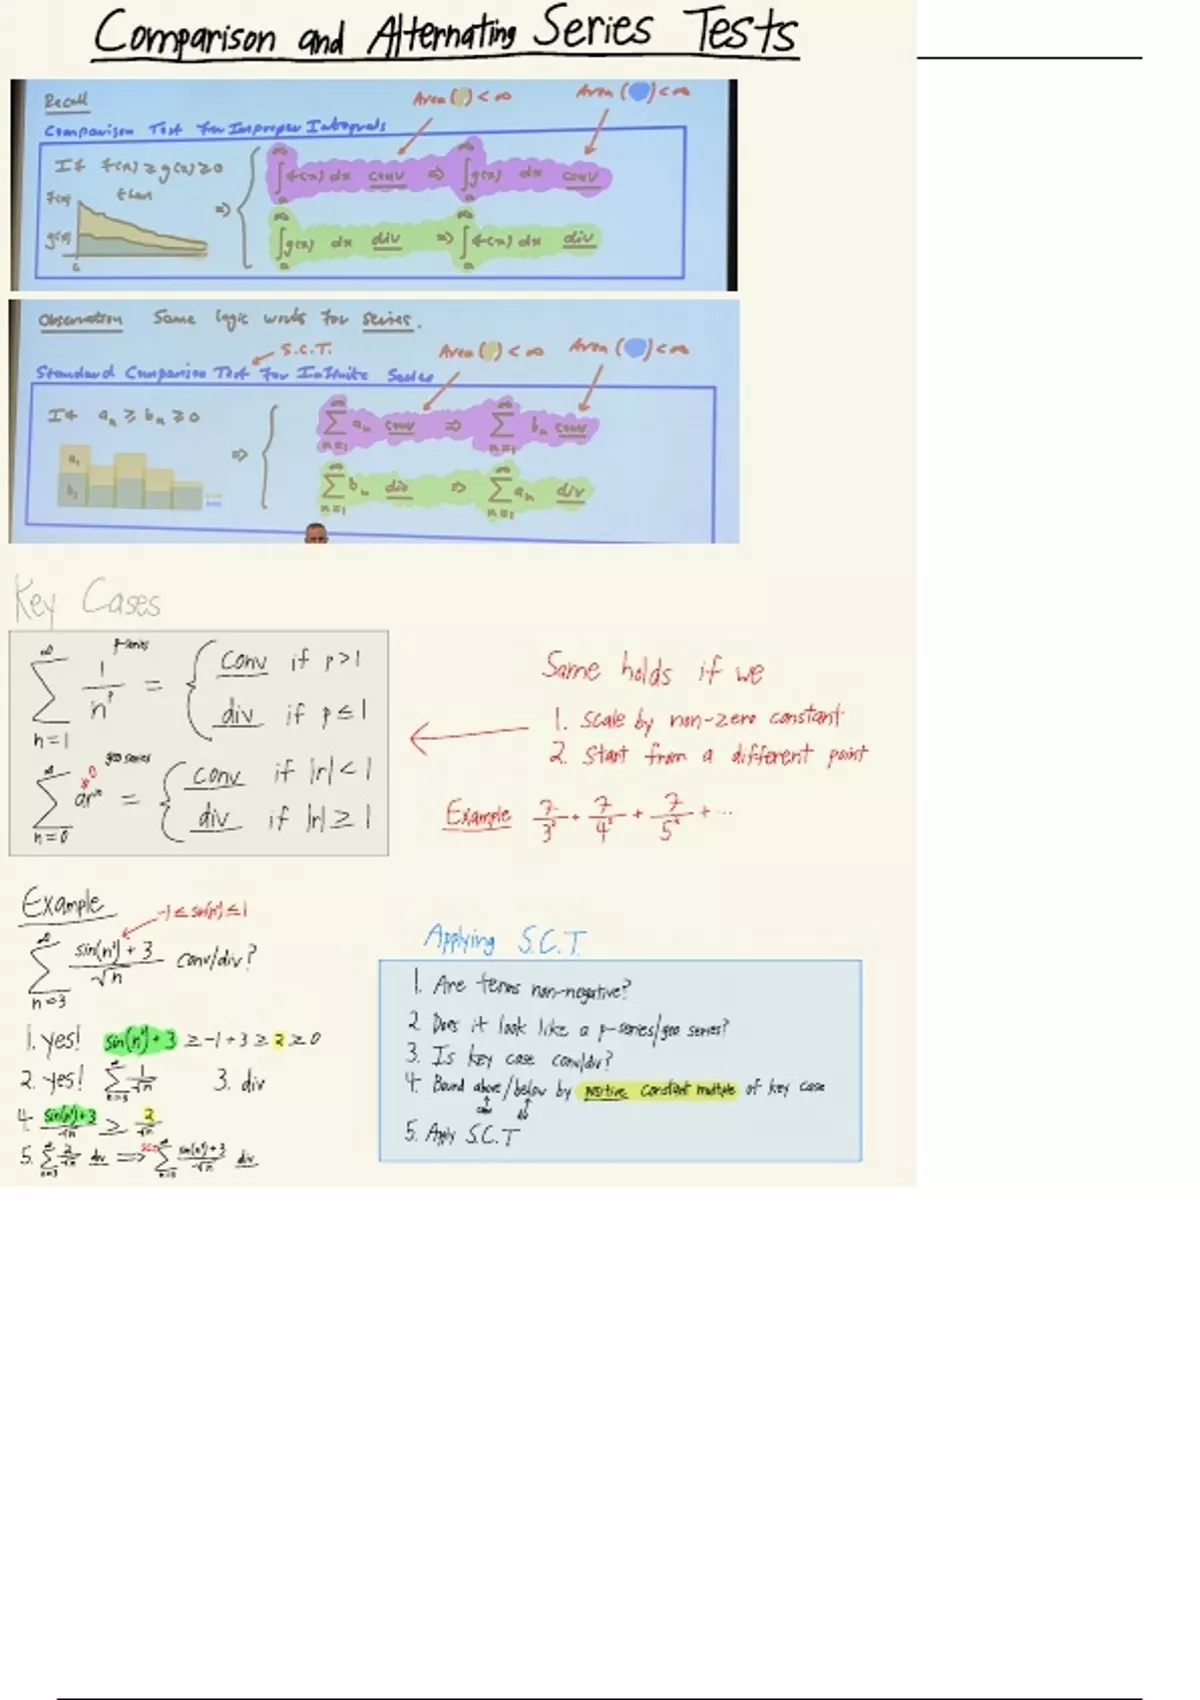 Comparison and Alternating Series Tests
Recall
Area ( ) < ∞
Area ( ) < ∞
Comparison Test for Improper Integrals
If f(x) ≥ g(x) ≥ 0
then
f(x)
g(x)
a
⇒ {
∫_a^∞ f(x) dx conv ⇒ ∫_a^∞ g(x) dx conv
∫_a^∞ g(x) dx div ⇒ ∫_a^∞ f(x) dx div
Observation Same logic works for series.
S.C.T.
Area ( ) < ∞
Area ( ) < ∞
Standard Comparison Test For Infinite Series
If a_n ≥ b_n ≥ 0
a_1
b_1
⇒ {
∑_{n=1}^∞ a_n conv ⇒ ∑_{n=1}^∞ b_n conv
∑_{n=1}^∞ b_n div ⇒ ∑_{n=1}^∞ a_n div
Key Cases
p-series
∑_{n=1}^∞ 1/n^p = { conv if p>1
div if p≤1
geo series
≠0
∑_{n=0}^∞ ar^n = { conv if |r|<1
div if |r|≥1
Same holds if we
1. scale by non-zero constant
2. start from a different point
Example 7/3² + 7/4² + 7/5² + ...
Example
-1 ≤ sin(n²) ≤ 1
∑_{n=3}^∞ (sin(n²)+3)/√n conv/div?
1. yes! sin(n²)+3 ≥ -1+3 ≥ 2 ≥ 0
2. yes! ∑_{n=3}^∞ 1/√n 3. div
4. (sin(n²)+3)/√n ≥ 2/√n
5. ∑_{n=3}^∞ 2/√n div ⇒ ∑_{n=3}^∞ (sin(n²)+3)/√n div
Applying S.C.T.
1. Are terms non-negative?
2. Does it look like a p-series/geo series?
3. Is key case conv/div?
4. Bound above/below by positive constant multiple of key case
conv div
5. Apply S.C.T